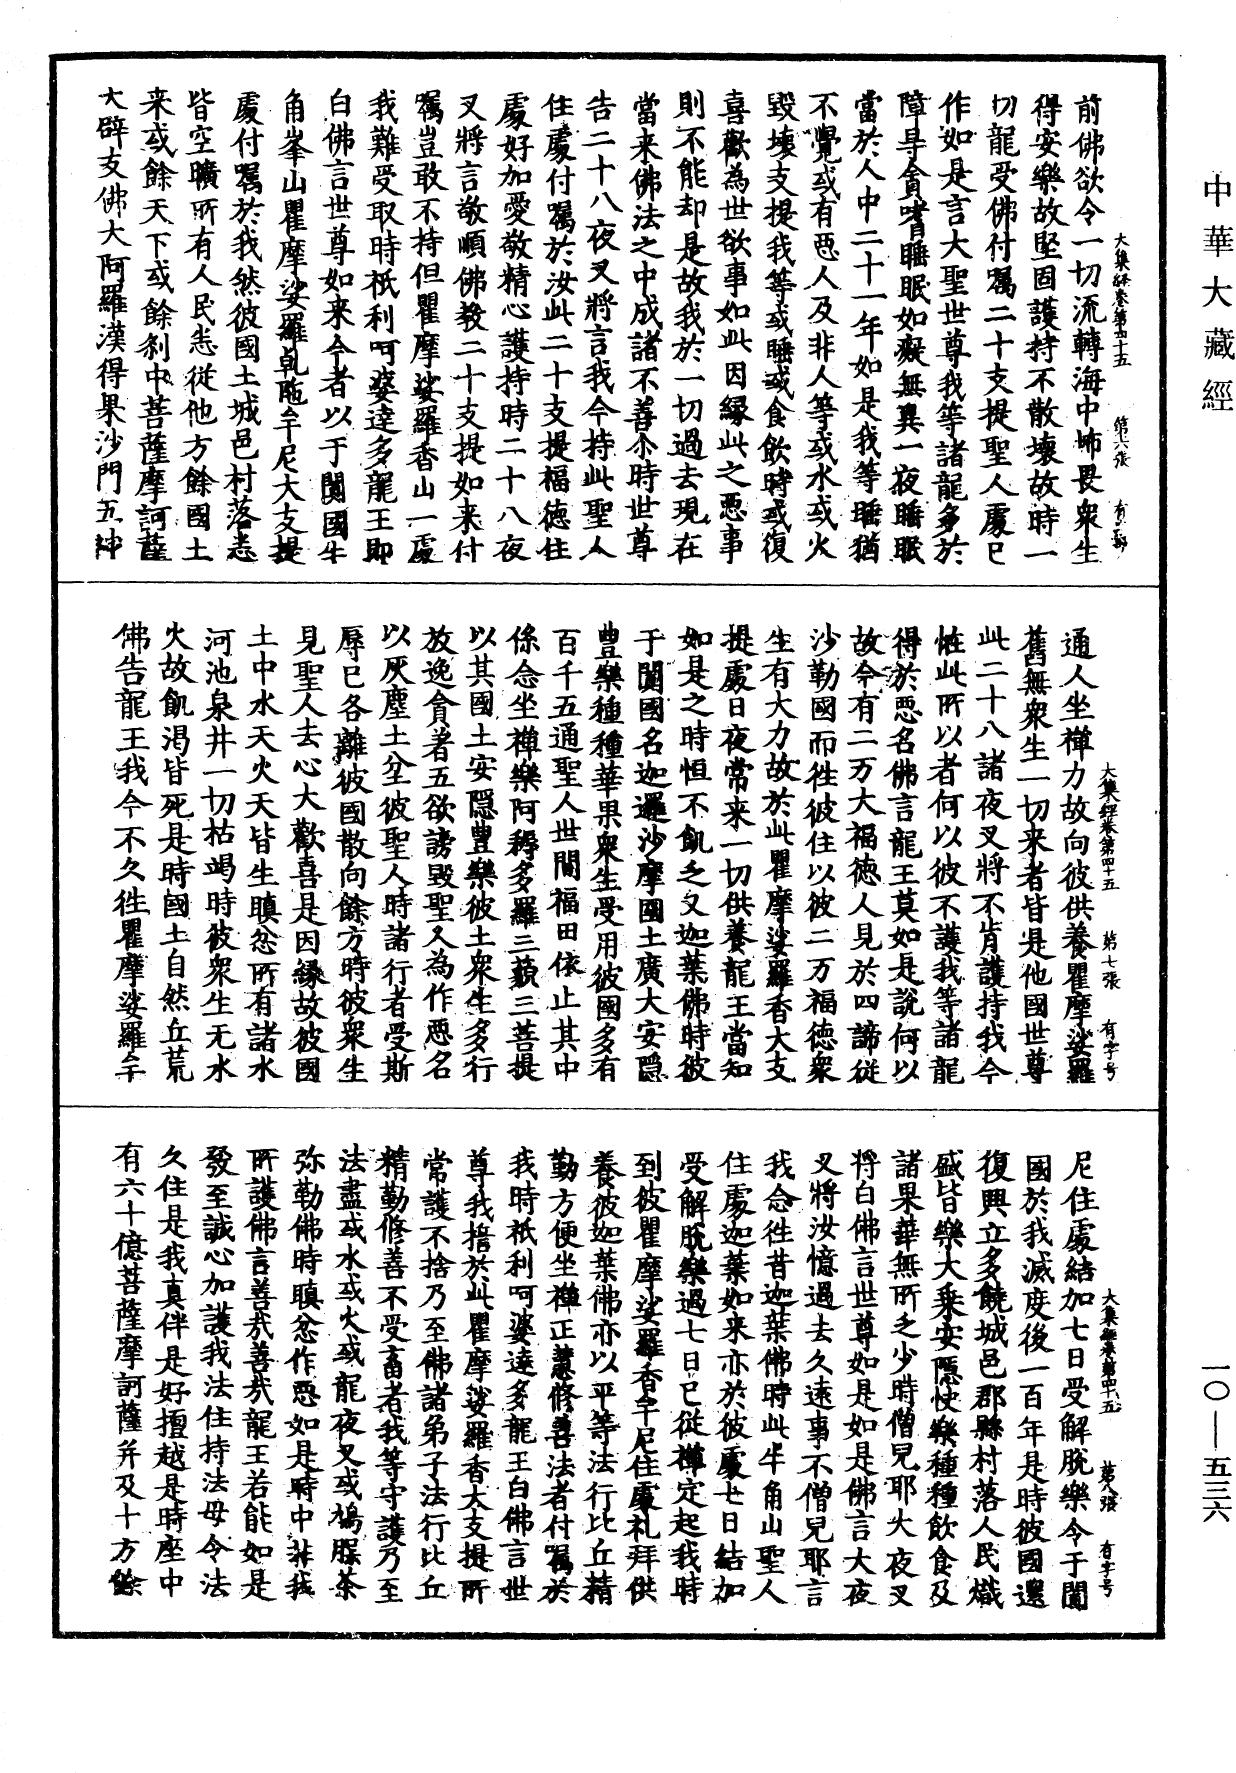 中華大藏經
大集經卷第四十五 第六張 有字號
前佛欲令一切流轉海中怖畏衆生
得安樂故堅固護持不散壞故時一
切龍受佛付囑二十支提聖人處已
作如是言大聖世尊我等諸龍多於
障㝵貪嗜睡眠如癡無異一夜睡眠
當於人中二十一年如是我等睡猶
不覺或有惡人及非人等或水或火
毀壞支提我等或睡或食飲時或復
喜歡為世欲事如此因緣此之惡事
則不能却是故我於一切過去現在
當來佛法之中成諸不善尒時世尊
告二十八夜叉將言我今持此聖人
住處付囑於汝此二十支提福德住
處好加愛敬精心護持時二十八夜
叉將言敬順佛教二十支提如來付
囑豈敢不持但瞿摩娑羅香山一處
我難受取時祇利呵婆達多龍王即
白佛言世尊如来今者以于闐國牛
角峯山瞿摩娑羅乹陁牟尼大支提
處付囑於我然彼國土城邑村落悉
皆空曠所有人民悉從他方餘國土
来或餘天下或餘刹中菩薩摩訶薩
大辟支佛大阿羅漢得果沙門五神
大集經卷第四十五 第七張 有字号
通人坐禪力故向彼供養瞿摩娑羅
舊無衆生一切来者皆是他國世尊
此二十八諸夜叉將不肯護持我今
恠此所以者何以彼不護我等諸龍
得於惡名佛言龍王莫如是說何以
故今有二万大福德人見於四諦從
沙勒國而徃彼住以彼二万福德衆
生有大力故於此瞿摩娑羅香大支
提處日夜常来一切供養龍王當知
如是之時恒不飢乏又迦葉佛時彼
于闐國名迦邏沙摩國土廣大安隱
豊樂種種華果衆生受用彼國多有
百千五通聖人世間福田依止其中
係念坐禪樂阿耨多羅三藐三菩提
以其國土安隱豊樂彼土衆生多行
放逸貪著五欲謗毀聖人為作惡名
以灰塵土坌彼聖人時諸行者受斯
辱已各離彼國散向餘方時彼衆生
見聖人去心大歡喜是因緣故彼國
土中水天火天皆生瞋忿所有諸水
河池泉井一切枯竭時彼衆生无水
火故飢渴皆死是時國土自然丘荒
佛告龍王我今不久徃瞿摩娑羅牟
大集經卷第四十五 第八張 有字号
尼住處結加七日受解脫樂令于闐
國於我滅度後一百年是時彼國還
復興立多饒城邑郡縣村落人民熾
盛皆樂大乘安隱快樂種種飲食及
諸果華無所乏少時僧兒耶大夜叉
將白佛言世尊如是如是佛言大夜
叉將汝憶過去久遠事不僧兒耶言
我念徃昔迦葉佛時此牛角山聖人
住處迦葉如来亦於彼處七日結加
受解脫樂過七日已從禪定起我時
到彼瞿摩娑羅香牟尼住處礼拜供
養彼迦葉佛亦以平等法行比丘精
勤方便坐禪正慧修善法者付囑於
我時祇利呵婆達多龍王白佛言世
尊我捨於此瞿摩娑羅香大支提所
常護不捨乃至佛諸弟子法行比丘
精勤修善不受畜者我等守護乃至
法盡或水或火或龍夜叉或鳩槃茶
弥勒佛時瞋忿作惡如是時中非我
所護佛言善哉善哉龍王若能如是
發至誠心加護我法住持法母令法
久住是我真伴是好擅越是時座中
有六十億菩薩摩訶薩并及十方餘
一〇—五三六